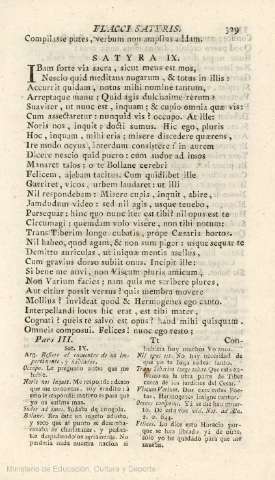 FLACCI SATYRIS. 329
Compilasse putes, verbum non amplius addam.
SATYRA IX.
IBam forte via sacra, sicut meus est mos,
Nescio quid meditans nugarum, & totus in illis:
Accurrit quidam, notus mihi nomine tantum,
Arreptaque manu: Quid agis dulcissime rerum?
Suaviter, ut nunc est, inquam; & cupio omnia quæ vis:
Cum assectaretur: nunquid vis? occupo. At ille:
Noris nos, inquit; docti sumus. Hic ego, pluris
Hoc, inquam, mihi eris; misere discedere quærens,
Ire modo ocyus, interdum consistere; in aurem
Dicere nescio quid puero: cum sudor ad imos
Manaret talos: o te Bollane cerebri
Felicem, ajebam tacitus. Cum quidlibet ille
Garriret, vicos, urbem laudaret: ut illi
Nil respondebam: Misere cupis, inquit, abire,
Jamdudum video: sed nil agis, usque tenebo,
Persequar: hinc quo nunc iter est tibi? nil opus est te
Circumagi; quemdam volo visere, non tibi notum:
Trans Tiberim longe cubat is, prope Cæsaris hortos.
Nil habeo, quod agam, & non sum piger: usque sequar te
Demitto auriculas, ut iniquæ mentis asellus,
Cum gravius dorso subiit onus. Incipit ille:
Si bene me novi, non Viscum pluris amicum,
Non Varium facies; nam quis me scribere plures,
Aut citius possit versus? quis membra movere
Mollius? invideat quod & Hermogenes ego canto.
Interpellandi locus hic erat, est tibi mater,
Cognati? queis te salvo est opus? haud mihi quisquam.
Omneis composui. Felices! nunc ego resto;
Pars III. Tt Con-
Sat. IX.
Arg. Refiere el
Occupo. Le pregunto antes que me
hable.
Noris nos inquit. Me responde
Sudor ad imos. Sudaba de congoja.
Bollane. Era éste un sugeto adusto,
y seco que al punto se desemba-
Nil opus est. No hay necesidad de
que
Trans Tiberim longe cubat
de la otra parte de Tiber
cerca de los jardines del Cesar.
Viscum Varium. Dos excelentes Poe-
tas, Hermogenes insigne cantor.
Omneis composui. Yá se han muer-
Felices. Lo dice esto Horacio por-
que se han librado yá de éste,
solo yo he quedado para que me
Ministerio de Educación, Cultura y Deporte